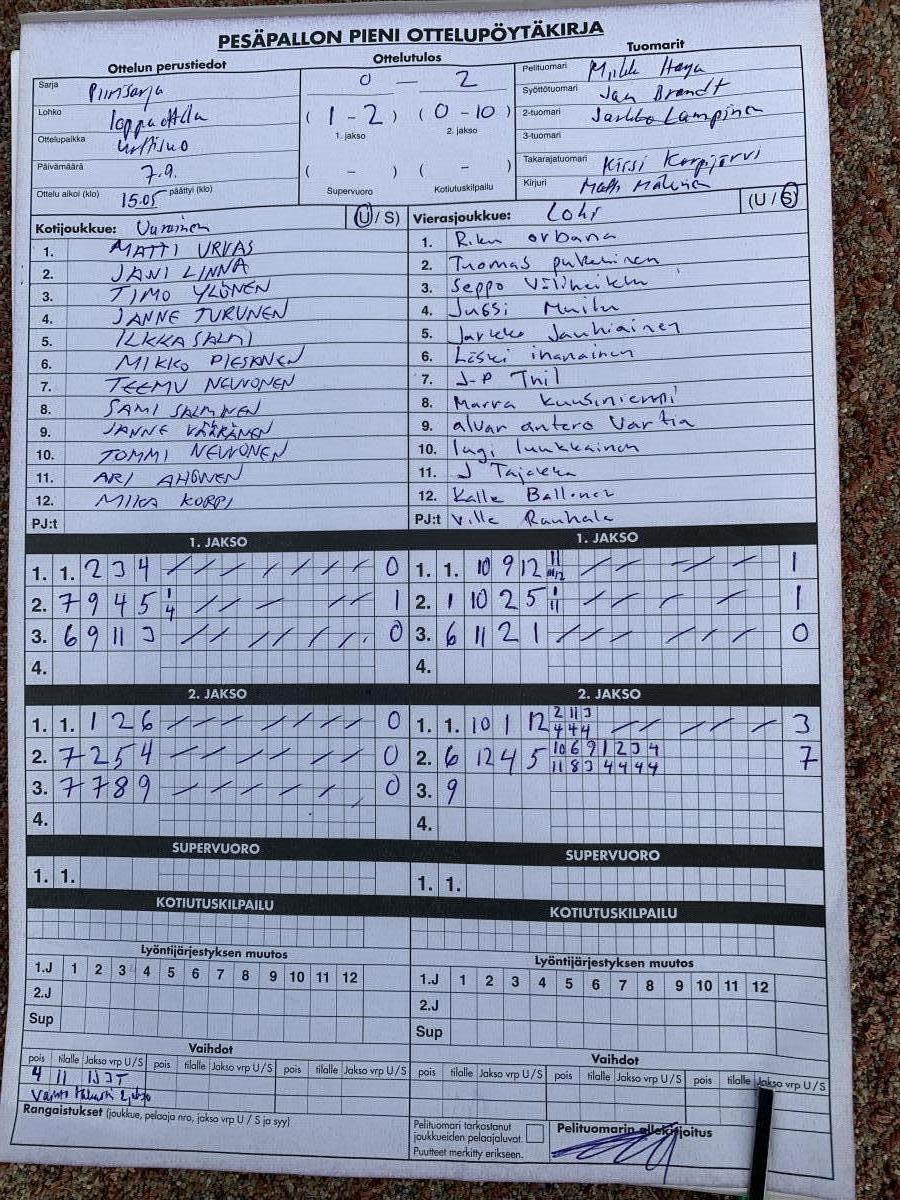 PESÄPALLON PIENI OTTELUPÖYTÄKIRJA
Ottelun perustiedot Ottelutulos Tuomarit
Sarja Piirisarja 0 – 2 Pelituomari
Lohko ( 1 - 2 ) ( 0 - 10 ) Syöttötuomari Jan Brandt
1. jakso 2. jakso 2-tuomari Jarkko Lampinen
Ottelupaikka 3-tuomari
Päivämäärä 7.9. ( - ) ( - ) Takarajatuomari Kirsi Korpijärvi
Ottelu alkoi (klo) 15.05 päättyi (klo) Supervuoro Kotiutuskilpailu Kirjuri Matti
Kotijoukkue: (U / S) Vierasjoukkue: Lohi (U / S)
1. MATTI URVAS 1. Riku orbana
2. JANI LINNA 2. Tuomas
3. TIMO YLÖNEN 3. Seppo
4. JANNE TURUNEN 4. Jussi
5. ILKKA SALMI 5. Jarkko Jauhiainen
6. MIKKO PIESANEN 6. ihanainen
7. TEEMU NEUVONEN 7. J-P
8. SAMI SALMINEN 8. Marra kuusiniemi
9. JANNE VÄÄRÄNEN 9. alvar antero Vartia
10. TOMMI NEUVONEN 10. lugi luukkainen
11. ARI AHONEN 11. J Tajakka
12. MIKA KORPI 12. Kalle
PJ:t PJ:t Ville Rauhala
1. JAKSO 1. JAKSO
1. 1. 2 3 4 0 1. 1. 10 9 12 11 1
2. 7 9 4 5 1 4 1 2. 1 10 2 5 1 11 1
3. 6 9 11 3 0 3. 6 11 2 1 0
4. 4.
2. JAKSO 2. JAKSO
1. 1. 1 2 6 0 1. 1. 10 1 12 2 11 3 3
4 4 4
2. 7 2 5 4 0 2. 6 12 4 5 10 6 9 1 2 3 4 7
11 8 3 4 4 4 4
3. 7 7 8 9 0 3. 9
4. 4.
SUPERVUORO SUPERVUORO
1. 1. 1. 1.
KOTIUTUSKILPAILU KOTIUTUSKILPAILU
Lyöntijärjestyksen muutos Lyöntijärjestyksen muutos
1.J 1 2 3 4 5 6 7 8 9 10 11 12 1.J 1 2 3 4 5 6 7 8 9 10 11 12
2.J 2.J
Sup Sup
Vaihdot Vaihdot
pois tilalle Jakso vrp U / S pois tilalle Jakso vrp U / S pois tilalle Jakso vrp U / S pois tilalle Jakso vrp U / S pois tilalle Jakso vrp U / S pois tilalle Jakso vrp U / S
4 11
Rangaistukset (joukkue, pelaaja nro, jakso vrp U / S ja syy)
Pelituomari tarkastanut joukkueiden pelaajaluvat.
Puutteet merkitty erikseen.
Pelituomarin allekirjoitus